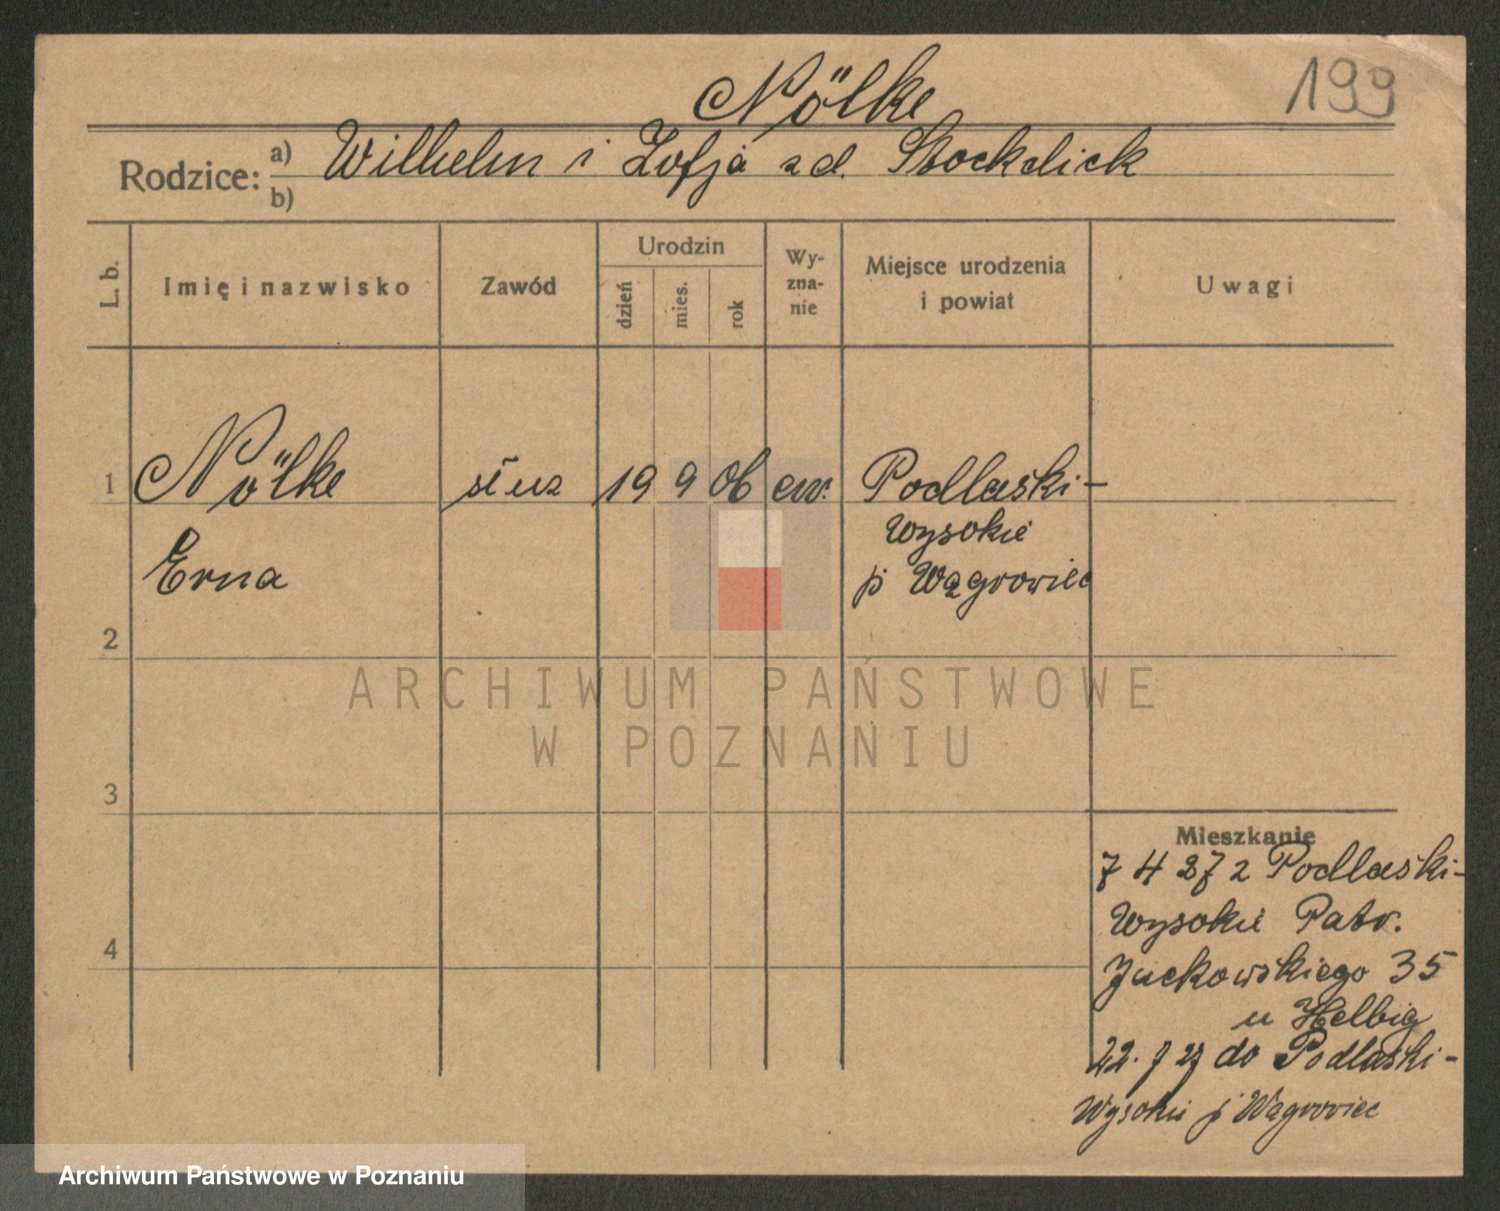 Nölke
199
Rodzice:
a) Wilhelm i Zofja zd. Stockdick
b)
L. b.
Imię i nazwisko
Zawód
Urodzin
dzień
mies.
rok
Wy-
zna-
nie
Miejsce urodzenia
i powiat
Uwagi
1 Nölke służ 19 9 06 ew. Podlaski-
Wysokie
Erna p Wągrowiec
2
ARCHIWUM PAŃSTWOWE
W POZNANIU
3
Mieszkanie
7 4 27 z Podlaski-
Wysokie Patr.
Jackowskiego 35
4
u Helbig
22. 7 27 do Podlaski-
Wysokie p Wągrowiec
Archiwum Państwowe w Poznaniu